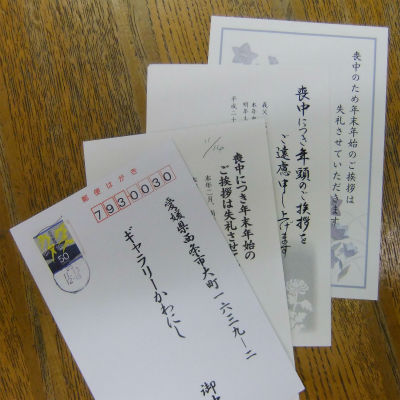 喪中のため年末年始のご挨拶は
失礼させていただきます
喪中につき年頭のご挨拶を
ご遠慮申し上げます
義父
本年
明年
平成二十
11/20
喪中につき年末年始の
ご挨拶は失礼させて
本年二月
郵便はがき
7930030
50
愛媛県西条市大町一六三九ー二
ギャラリーかわにし
御中